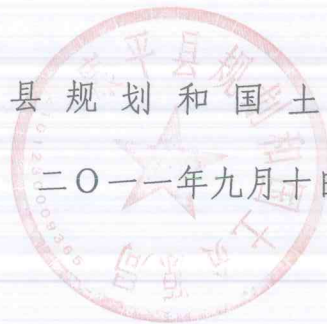 县规划和国土
二〇一一年九月十日